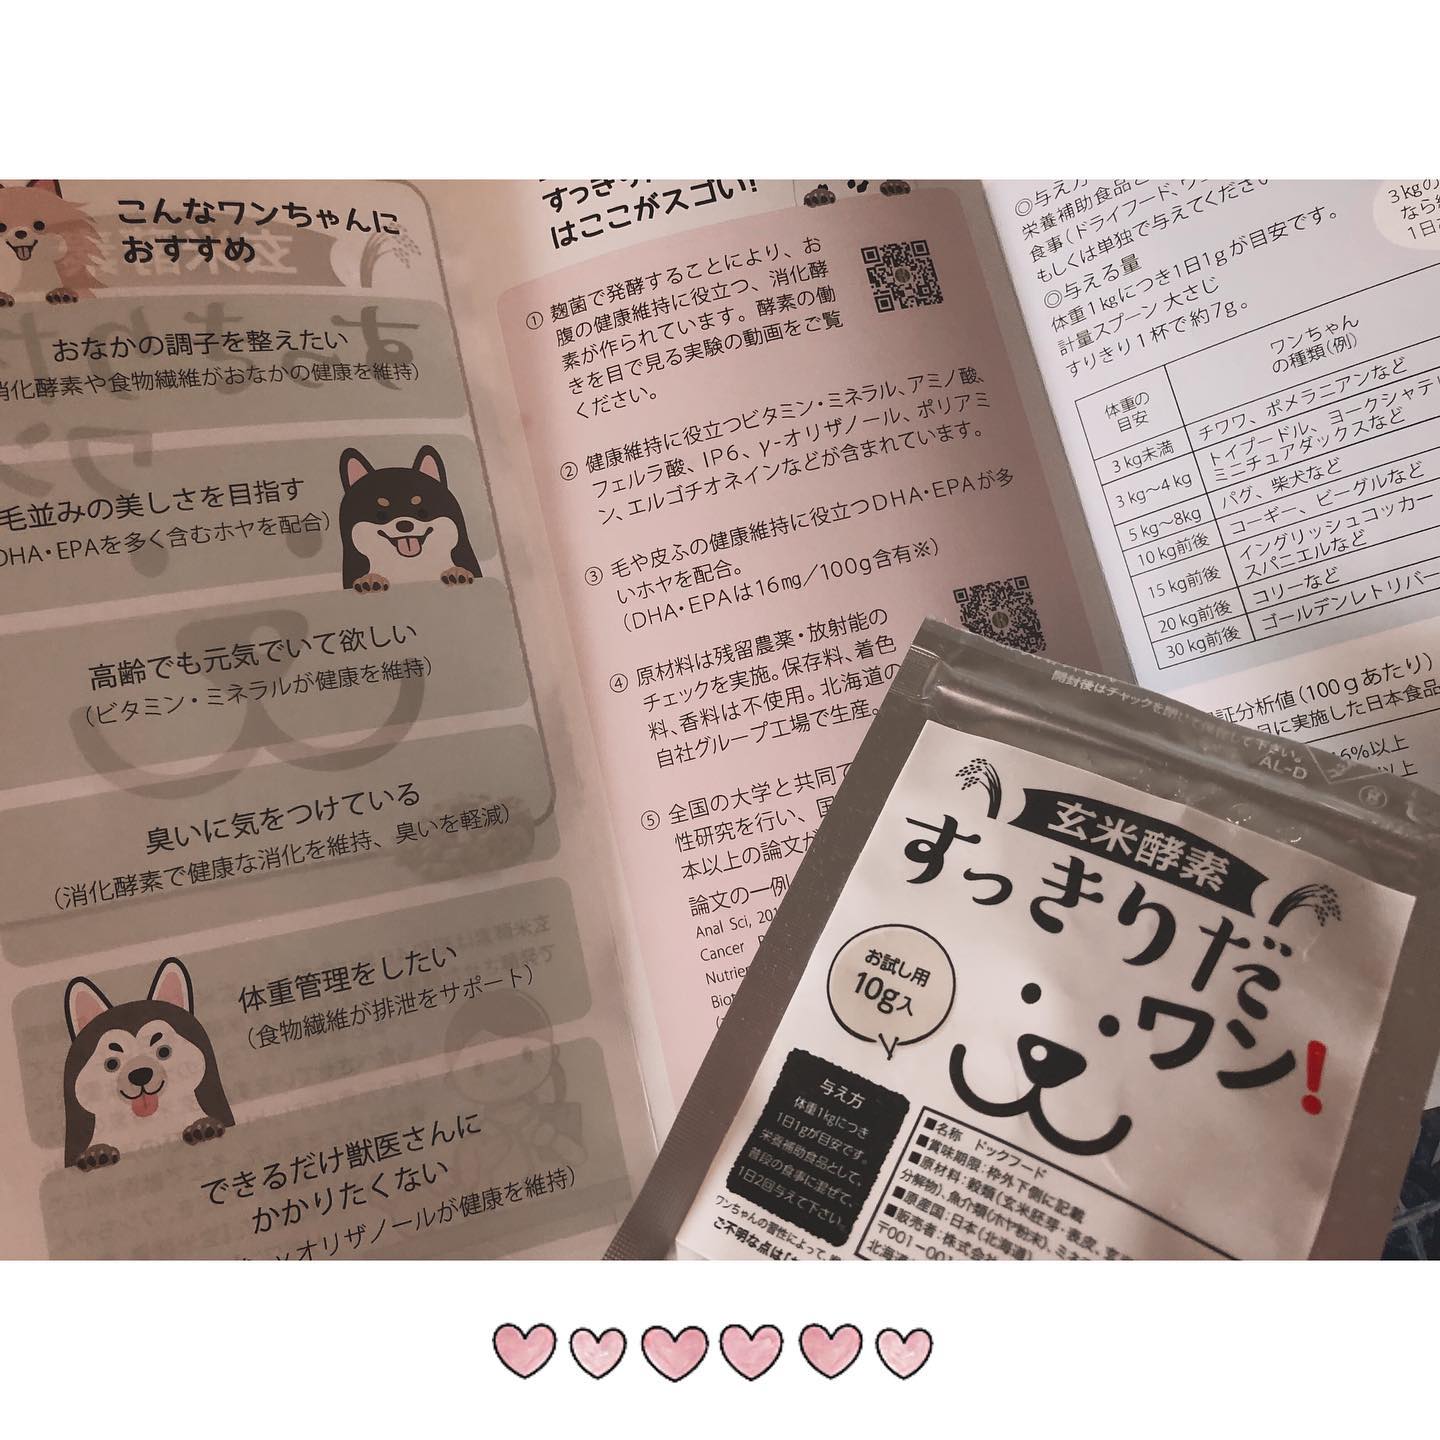 こんなワンちゃんに
おすすめ
おなかの調子を整えたい
消化酵素や食物繊維がおなかの健康を維持)
毛並みの美しさを目指す
DHA・EPAを多く含むホヤを配合)
高齢でも元気でいて欲しい
(ビタミン・ミネラルが健康を維持)
臭いに気をつけている
(消化酵素で健康な消化を維持、臭いを軽減)
体重管理をしたい
(食物繊維が排泄をサポート)
できるだけ獣医さんに
かかりたくない
γオリザノールが健康を維持)
はここがスゴい!
① 麹菌で発酵することにより、お
腹の健康維持に役立つ、消化酵
素が作られています。酵素の働
きを目で見る実験の動画をご覧
ください。
② 健康維持に役立つビタミン・ミネラル、アミノ酸、
フェルラ酸、IP6、γ-オリザノール、ポリアミ
ン、エルゴチオネインなどが含まれています。
③ 毛や皮ふの健康維持に役立つDHA・EPAが多
いホヤを配合。
(DHA・EPAは16mg/100g含有※)
④ 原材料は残留農薬・放射能の
チェックを実施。保存料、着色
料、香料は不使用。北海道の
自社グループ工場で生産。
⑤ 全国の大学と共同で
性研究を行い、国
本以上の論文が
論文の一例
Anal Sci, 20
Cancer
Nutrien
Biot
◎与え方
栄養補助食品と
食事(ドライフード、ウ
もしくは単独で与えてください
◎与える量
体重1kgにつき1日1gが目安です。
計量スプーン 大さじ
すりきり1杯で約7g。
3kgの
なら
1日
体重の
目安
ワンちゃん
の種類(例)
3kg未満 チワワ、ポメラニアンなど
3kg〜4kg トイプードル、ヨークシャテリ
ミニチュアダックスなど
5kg〜8kg パグ、柴犬など
10kg前後 コーギー、ビーグルなど
15kg前後 イングリッシュコッカー
スパニエルなど
20kg前後 コリーなど
30kg前後 ゴールデンレトリバー
証分析値(100gあたり)
日に実施した日本食品
6%以上
以上
開封後はチャックを閉じて保存して下さい。
AL-D
玄米酵素
すっきりだ
ワン!
お試し用
10g入
与え方
体重1kgにつき
1日1gが目安です。
栄養補助食品として、
普段の食事に混ぜて、
1日2回与えて下さい。
ワンちゃんの習性によって、
ご不明な点は
■名称 ドックフード
■賞味期限:枠外下側に記載
■原材料:穀類(玄米胚芽・表皮、玄
分解物)、魚介類(ホヤ粉末)、ミネ
■原産国:日本(北海道)
■販売者:株式会社
〒001-001
北海